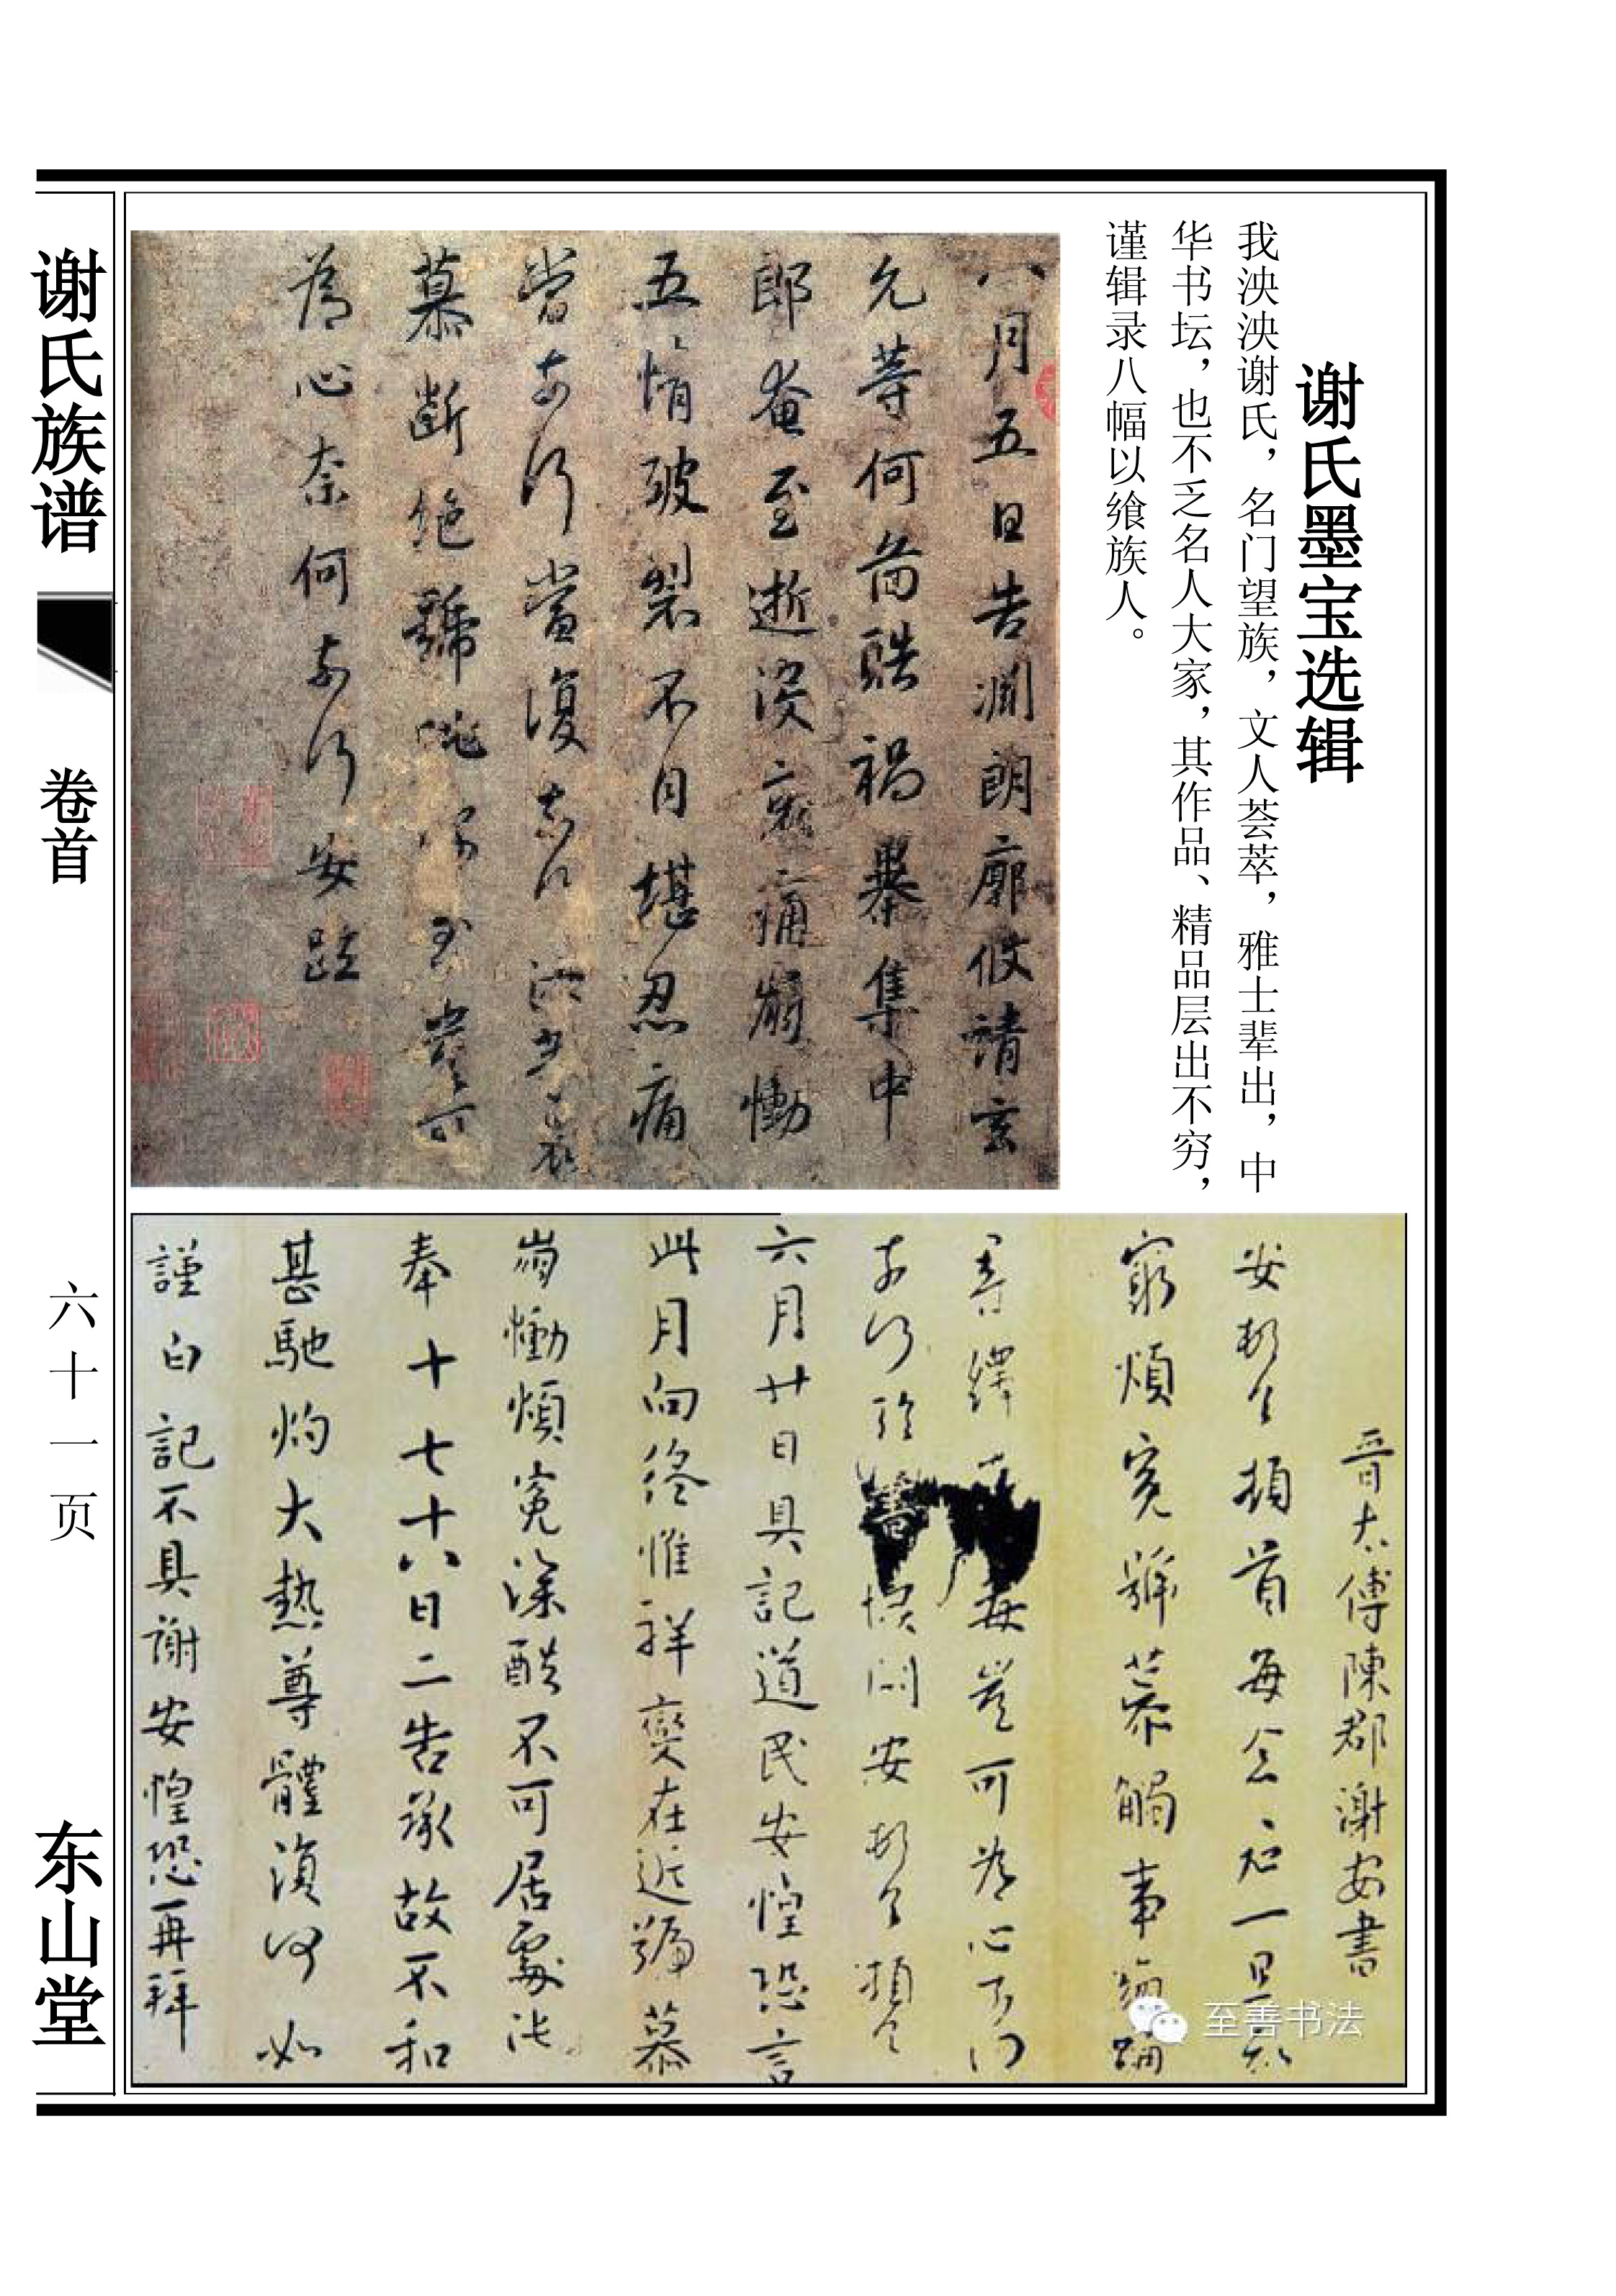 谢氏墨宝选辑
我泱泱谢氏，名门望族，文人荟萃，雅士辈出，中
华书坛，也不乏名人大家，其作品、精品层出不穷，
谨辑录八幅以飨族人。
八月五日告渊朗廓攸靖玄
允等何酷祸暴集中
郎奄至逝没哀痛崩恸
五情破裂不自堪忍痛
当奈何当复奈何
慕断绝号咷深至岂可
為心奈何奈何安疏
晋太傅陳郡謝安書
安頓首頓首每念君一旦知
窮煩冤號慕觸事
尋繹荼毒豈可為心奈何
奈何臨書悽悶安頓首頓首
六月廿日具記道民安惶恐言
此月向終惟祥變在近號慕
崩慟煩冤深酷不可居處比
奉十七十八日二告承故不和
甚馳灼大熱尊體復何如
謹白記不具謝安惶恐再拜
至善书法
谢氏族谱
卷首
六十一页
东山堂